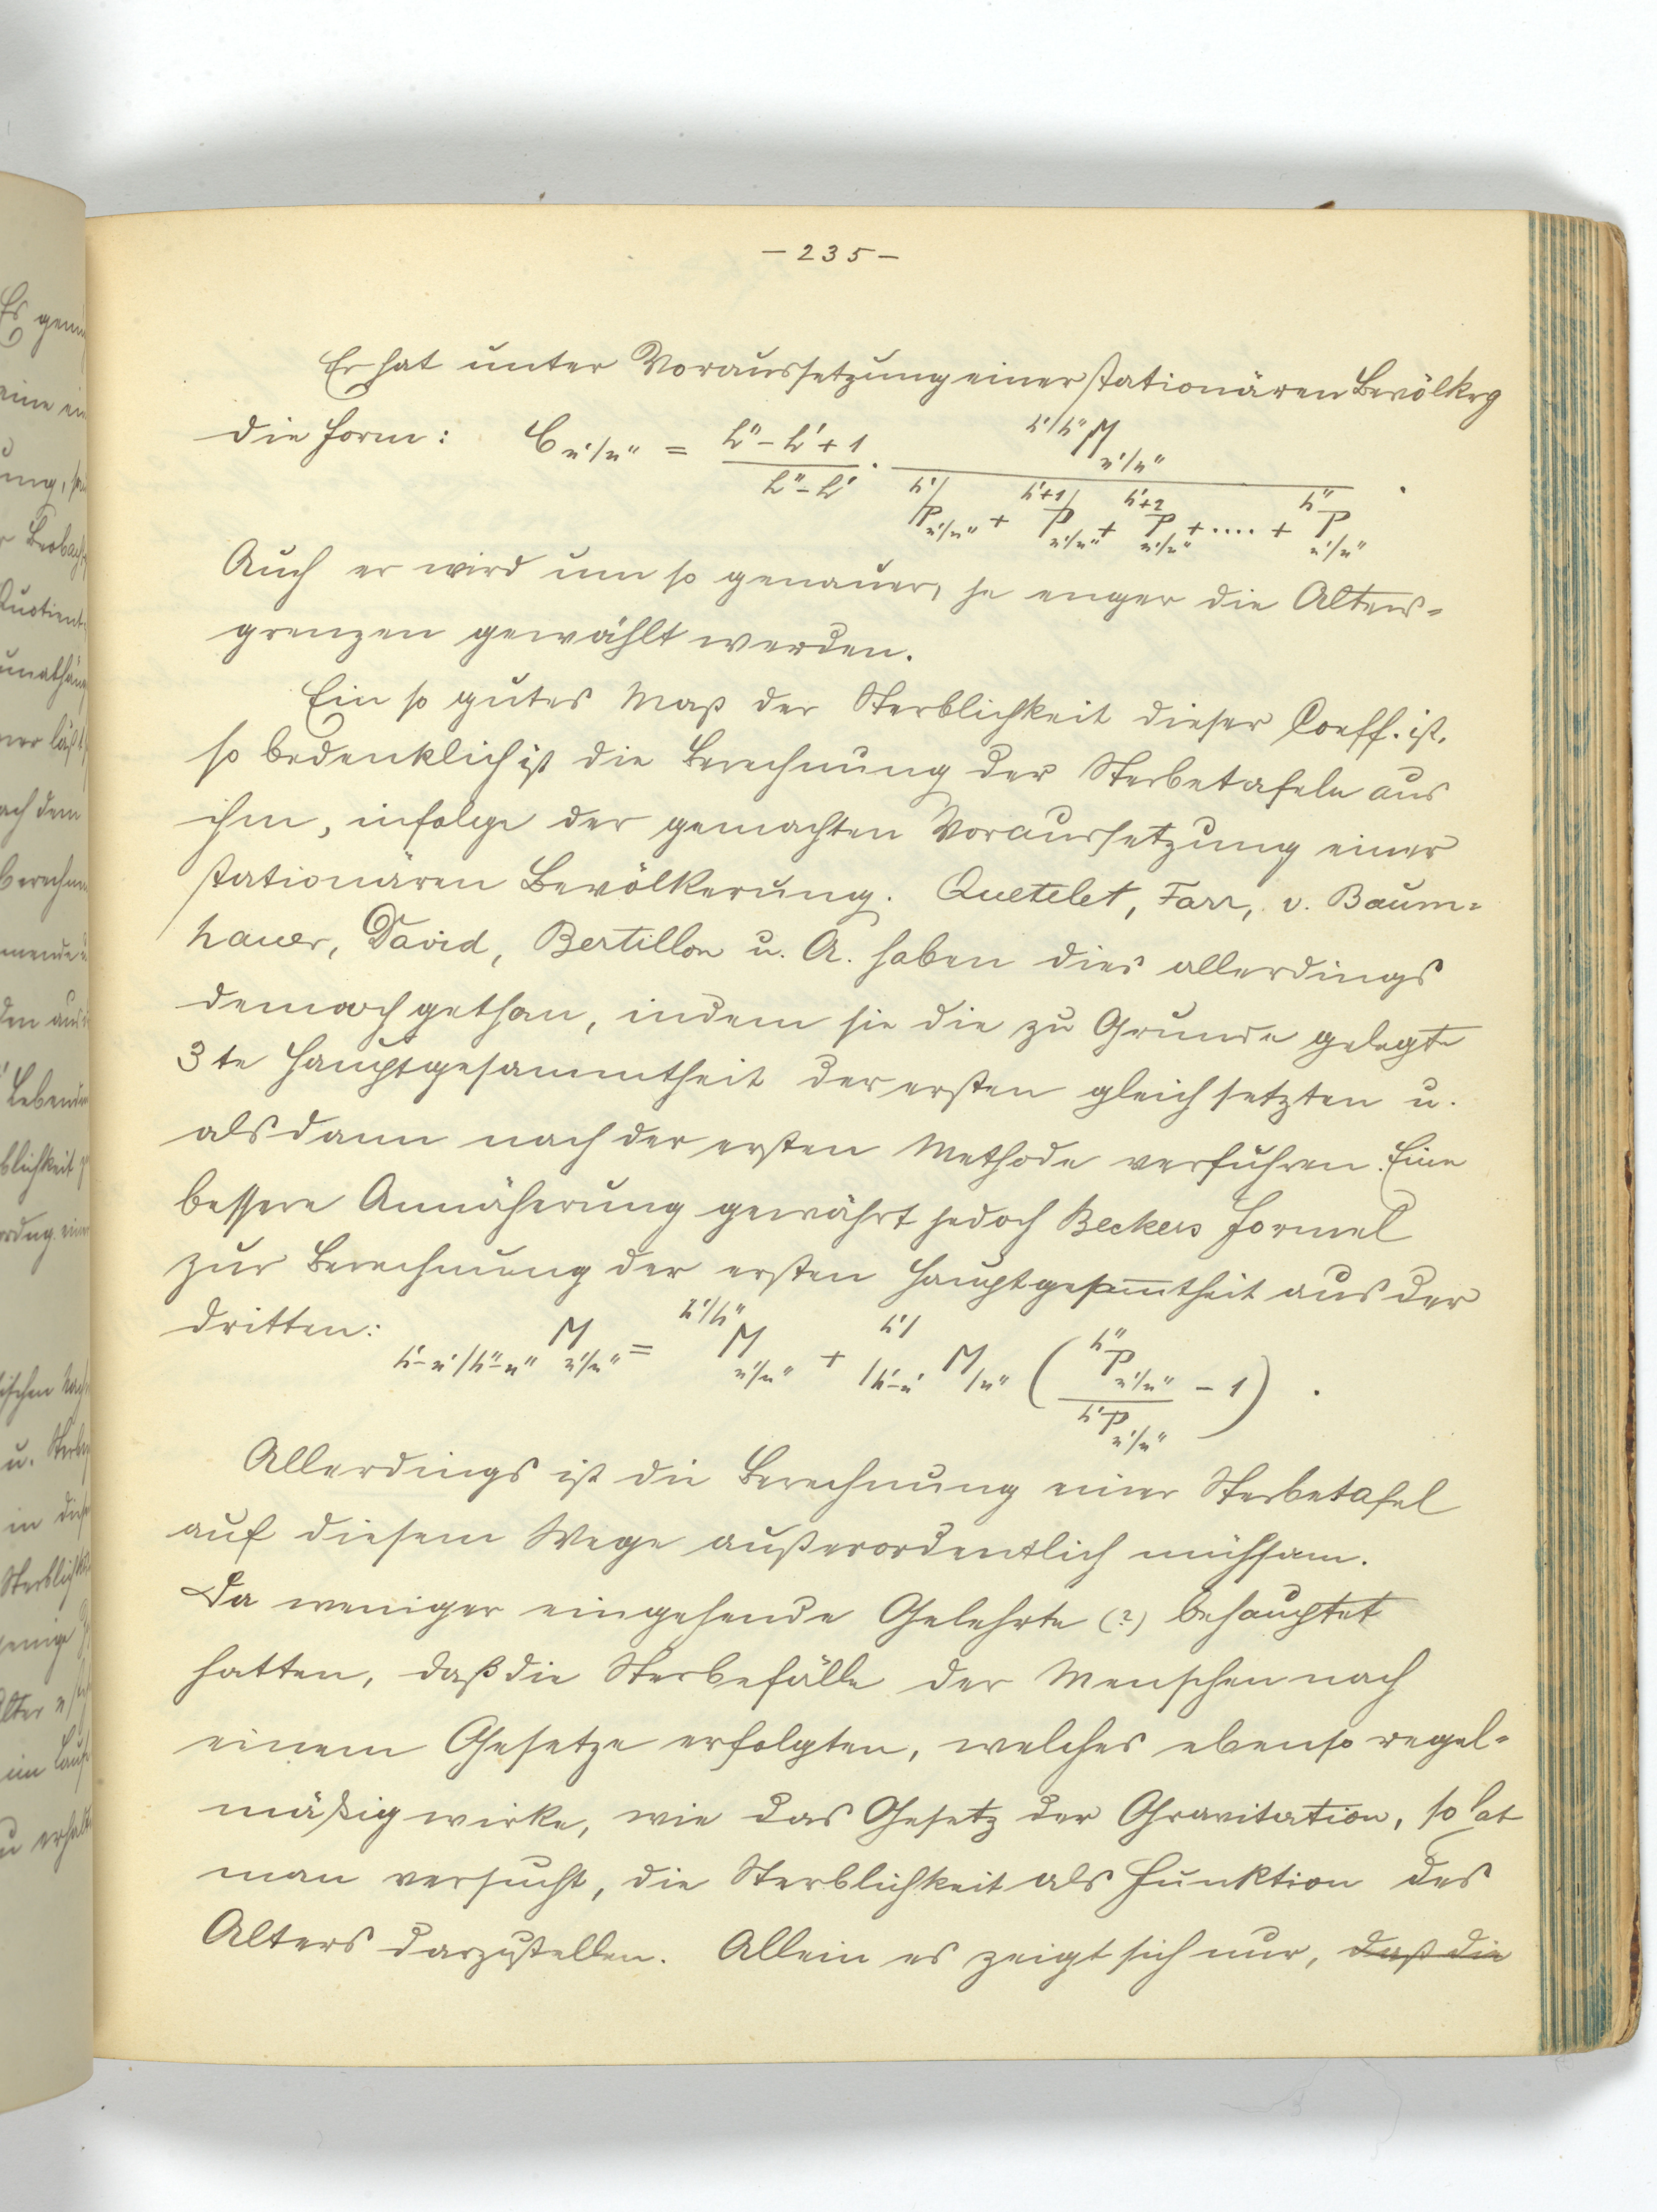 — 235 —
Er hat unter Voraussetzung einer stationären Bevölkrg
die Form: C n'/n'' = (h'' – h' + 1)/(h'' – h') · h'/h'' M n'/n'' / (h'/ P n'/n'' + h'+1/ P n'/n'' + h'+2 P n'/n'' + .... + h'' P n'/n'') .
Auch er wird um so genauer, je enger die Alters-
grenzen gewählt werden.
Ein so gutes Maß der Sterblichkeit dieser Coeff. ist,
so bedenklich ist die Berechnung der Sterbetafeln aus
ihm, infolge der gemachten Voraussetzung einer
stationären Bevölkerung. Quetelet, Farr, v. Baum-
hauer, David, Bertillon u. A. haben dies allerdings
dennoch gethan, indem sie die zu Grunde gelegte
3te Hauptgesammtheit der ersten gleich setzten u.
alsdann nach der ersten Methode verfuhren. Eine
bessere Annäherung gewährt jedoch Beckers Formel
zur Berechnung der ersten Hauptgesam̅theit aus der
dritten: h'–n'/h''–n'' M n'/n'' = h'/h'' M n'/n'' + h'/ /h'–n' M /n'' ( h'' P n'/n'' / h' P n'/n'' – 1 ) .
Allerdings ist die Berechnung einer Sterbetafel
auf diesem Wege außerordentlich mühsam.
Da weniger eingehende Gelehrte (?) behauptet
hatten, daß die Sterbefälle der Menschen nach
einem Gesetze erfolgten, welches ebenso regel-
mäßig wirke, wie das Gesetz der Gravitation, so hat
man versucht, die Sterblichkeit als Funktion des
Alters darzustellen. Allein es zeigt sich nur, daß die